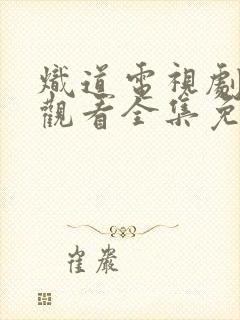 熾道電視劇
觀看全集免
崔嚴